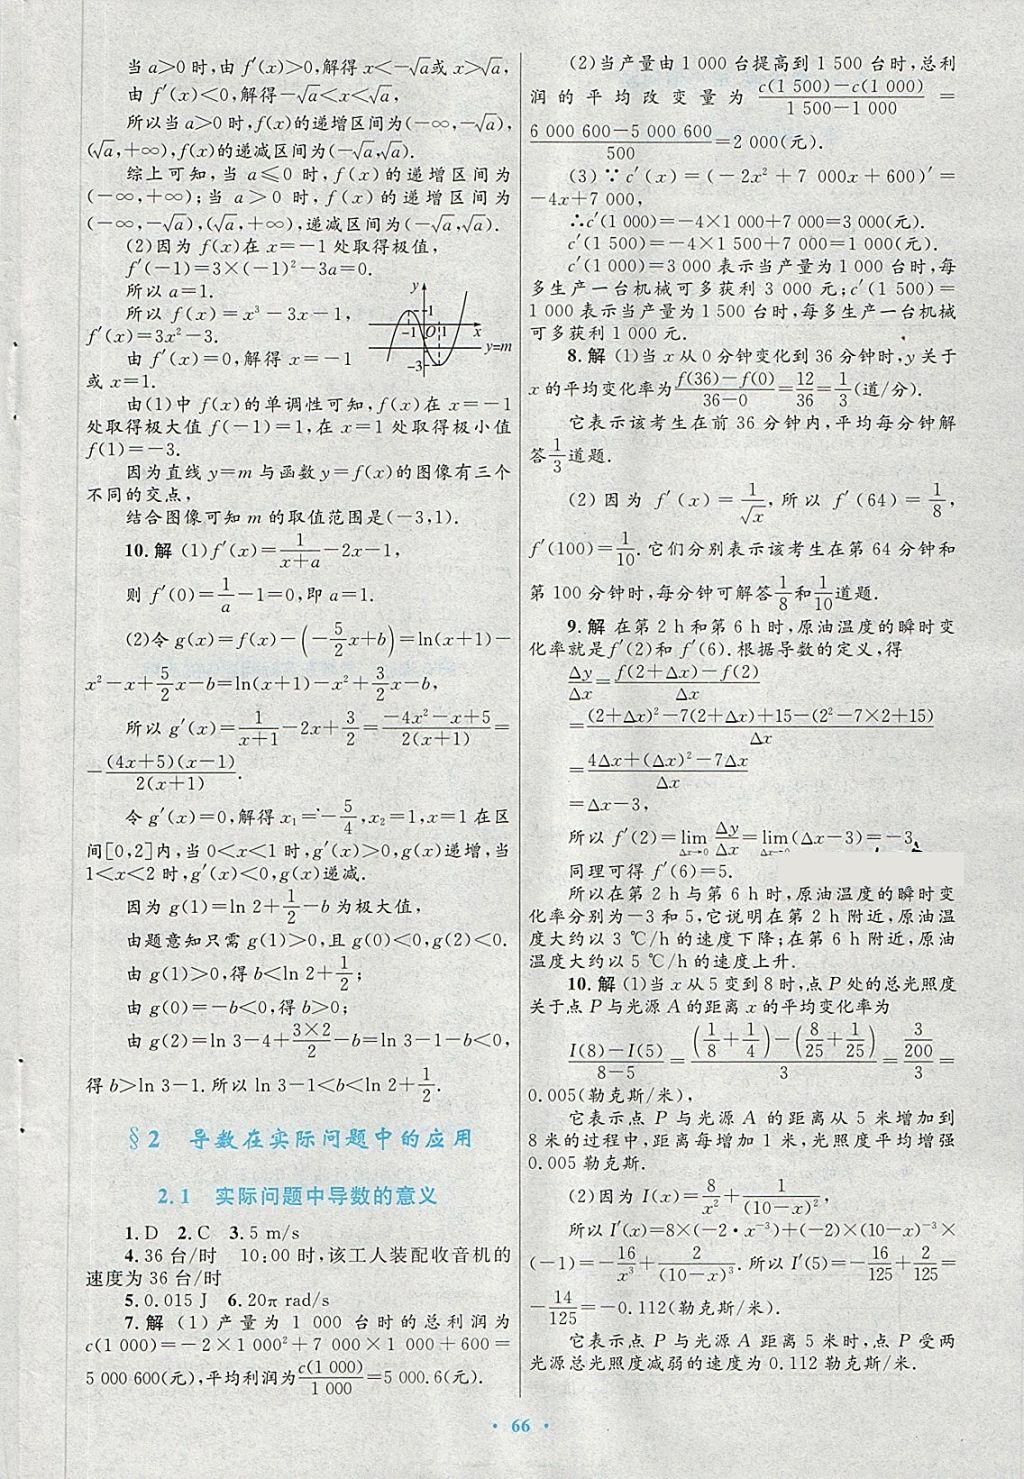 当 a>0 时,由 f′(x)>0,解得 x<-√a或 x>√a,
由 f′(x)<0,解得-√a<x<√a,
所以当 a>0 时,f(x)的递增区间为(-∞,-√a),
(√a,+∞),f(x)的递减区间为(-√a,√a).
综上可知,当 a≤0 时,f(x)的递增区间为
(-∞,+∞);当 a>0 时,f(x)的递增区间为
(-∞,-√a),(√a,+∞),递减区间为(-√a,√a).
(2)因为 f(x)在 x=-1 处取得极值,
f′(-1)=3×(-1)²-3a=0.
所以 a=1.
所以 f(x)=x³-3x-1,
f′(x)=3x²-3.
由 f′(x)=0,解得 x=-1
或 x=1.
y
1
-1 O 1 x
y=m
-3
由(1)中 f(x)的单调性可知,f(x)在 x=-1
处取得极大值 f(-1)=1,在 x=1 处取得极小值
f(1)=-3.
因为直线 y=m 与函数 y=f(x)的图像有三个
不同的交点,
结合图像可知 m 的取值范围是(-3,1).
10.解 (1)f′(x)=1/(x+a)-2x-1,
则 f′(0)=1/a-1=0,即 a=1.
(2)令 g(x)=f(x)-(-5/2x+b)=ln(x+1)-
x²-x+5/2x-b=ln(x+1)-x²+3/2x-b,
所以 g′(x)=1/(x+1)-2x+3/2=(-4x²-x+5)/(2(x+1))=
-(4x+5)(x-1)/(2(x+1)).
令 g′(x)=0,解得 x₁=-5/4,x₂=1,x=1 在区
间[0,2]内,当 0<x<1 时,g′(x)>0,g(x)递增,当
1<x<2 时,g′(x)<0,g(x)递减.
因为 g(1)=ln 2+1/2-b 为极大值,
由题意知只需 g(1)>0,且 g(0)<0,g(2)<0.
由 g(1)>0,得 b<ln 2+1/2;
由 g(0)=-b<0,得 b>0;
由 g(2)=ln 3-4+(3×2)/2-b=ln 3-1-b<0,
得 b>ln 3-1.所以 ln 3-1<b<ln 2+1/2.
§2 导数在实际问题中的应用
2.1 实际问题中导数的意义
1.D 2.C 3.5 m/s
4.36 台/时 10:00 时,该工人装配收音机的
速度为 36 台/时
5.0.015 J 6.20π rad/s
7.解 (1)产量为 1 000 台时的总利润为
c(1 000)=-2×1 000²+7 000×1 000+600=
5 000 600(元),平均利润为c(1 000)/1 000=5 000.6(元).
(2)当产量由 1 000 台提高到 1 500 台时,总利
润的平均改变量为(c(1 500)-c(1 000))/(1 500-1 000)=
(6 000 600-5 000 600)/500=2 000(元).
(3)∵c′(x)=(-2x²+7 000x+600)′=
-4x+7 000,
∴c′(1 000)=-4×1 000+7 000=3 000(元).
c′(1 500)=-4×1 500+7 000=1 000(元).
c′(1 000)=3 000 表示当产量为 1 000 台时,每
多生产一台机械可多获利 3 000 元;c′(1 500)=
1 000 表示当产量为 1 500 台时,每多生产一台机械
可多获利 1 000 元.
8.解 (1)当 x 从 0 分钟变化到 36 分钟时,y 关于
x 的平均变化率为(f(36)-f(0))/(36-0)=12/36=1/3(道/分).
它表示该考生在前 36 分钟内,平均每分钟解
答1/3道题.
(2)因为 f′(x)=1/√x,所以 f′(64)=1/8,
f′(100)=1/10.它们分别表示该考生在第 64 分钟和
第 100 分钟时,每分钟可解答1/8和1/10道题.
9.解 在第 2 h 和第 6 h 时,原油温度的瞬时变
化率就是 f′(2)和 f′(6).根据导数的定义,得
Δy/Δx=(f(2+Δx)-f(2))/Δx
=((2+Δx)²-7(2+Δx)+15-(2²-7×2+15))/Δx
=(4Δx+(Δx)²-7Δx)/Δx
=Δx-3,
所以 f′(2)=lim(Δx→0) Δy/Δx=lim(Δx→0)(Δx-3)=-3.
同理可得 f′(6)=5.
所以在第 2 h 与第 6 h 时,原油温度的瞬时变
化率分别为-3 和 5,它说明在第 2 h 附近,原油温
度大约以 3 ℃/h 的速度下降;在第 6 h 附近,原油
温度大约以 5 ℃/h 的速度上升.
10.解 (1)当 x 从 5 变到 8 时,点 P 处的总光照度
关于点 P 与光源 A 的距离 x 的平均变化率为
(I(8)-I(5))/(8-5)=((1/8+1/4)-(8/25+1/25))/3=(3/200)/3=
0.005(勒克斯/米),
它表示点 P 与光源 A 的距离从 5 米增加到
8 米的过程中,距离每增加 1 米,光照度平均增强
0.005 勒克斯.
(2)因为 I(x)=8/x²+1/(10-x)²,
所以 I′(x)=8×(-2·x⁻³)+(-2)×(10-x)⁻³×
(-1)=-16/x³+2/(10-x)³.所以 I′(5)=-16/125+2/125=
-14/125=-0.112(勒克斯/米).
它表示点 P 与光源 A 距离 5 米时,点 P 受两
光源总光照度减弱的速度为 0.112 勒克斯/米.
· 66 ·